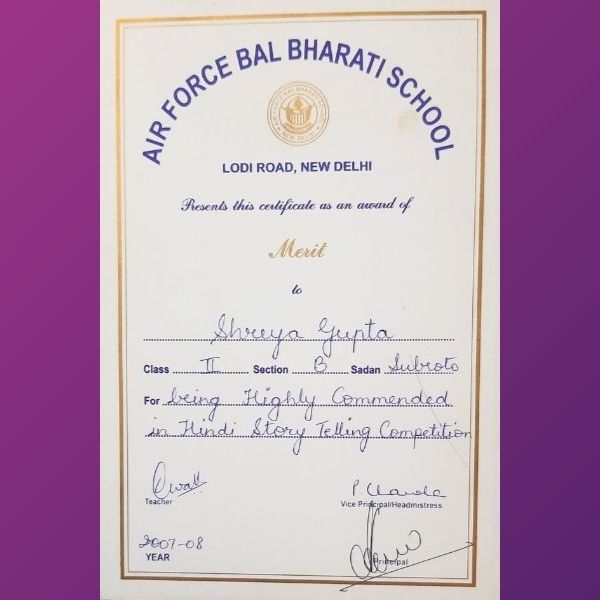 AIR FORCE BAL BHARATI SCHOOL
LODI ROAD, NEW DELHI
Presents this certificate as an award of
Merit
to
Shreya Gupta
Class II Section B Sadan Subroto
For being Highly Commended
in Hindi Story Telling Competition
Teacher
Vice Principal/Headmistress
2007-08
YEAR
Principal